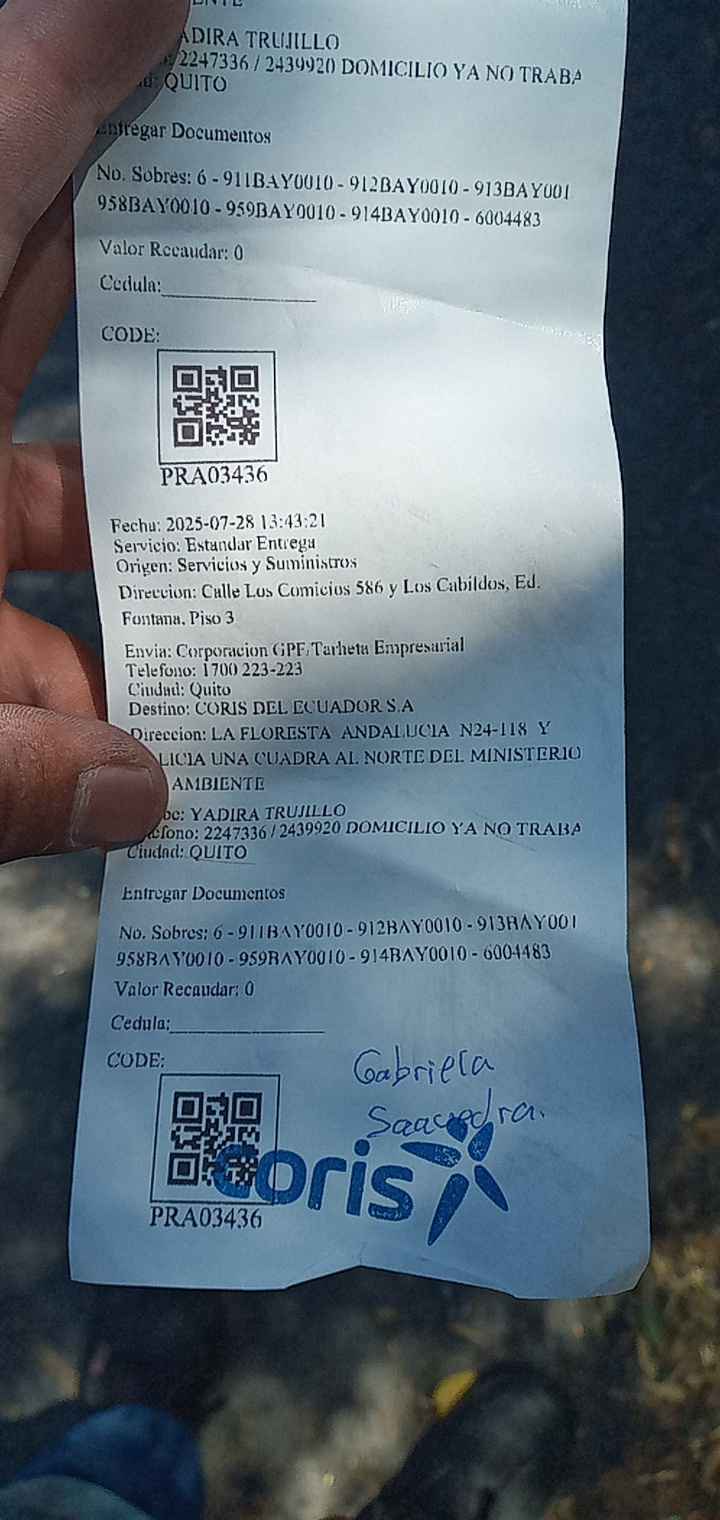 ENTE
YADIRA TRUJILLO
2247336 / 2439920 DOMICILIO YA NO TRABA
QUITO
Entregar Documentos
No. Sobres: 6 - 911BAY0010 - 912BAY0010 - 913BAY001
958BAY0010 - 959BAY0010 - 914BAY0010 - 6004483
Valor Recaudar: 0
Cedula:
CODE:
PRA03436
Fecha: 2025-07-28 13:43:21
Servicio: Estandar Entrega
Origen: Servicios y Suministros
Direccion: Calle Los Comicios 586 y Los Cabildos, Ed.
Fontana, Piso 3
Envia: Corporacion GPF/Tarheta Empresarial
Telefono: 1700 223-223
Ciudad: Quito
Destino: CORIS DEL ECUADOR S.A
Direccion: LA FLORESTA ANDALUCIA N24-118 Y
LICIA UNA CUADRA AL NORTE DEL MINISTERIO
AMBIENTE
be: YADIRA TRUJILLO
efono: 2247336 / 2439920 DOMICILIO YA NO TRABA
Ciudad: QUITO
Entregar Documentos
No. Sobres: 6 - 911BAY0010 - 912BAY0010 - 913BAY001
958BAY0010 - 959BAY0010 - 914BAY0010 - 6004483
Valor Recaudar: 0
Cedula:
CODE:
Gabriela
Saavedra.
coris
PRA03436